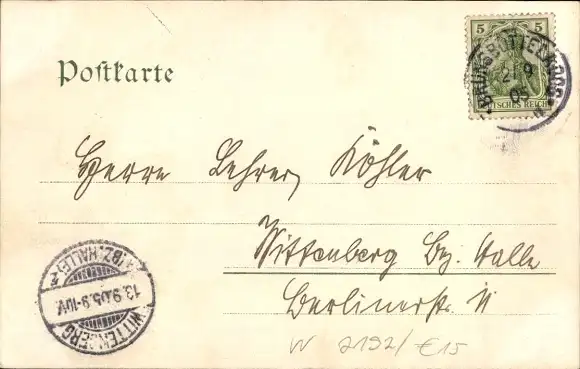 5 5
BRUNSBÜTTELKOOG
9
05
DEUTSCHES REICH
Postkarte
Herrn Lehrer Köhler
Wittenberg Bz. Halle
Berlinerstr. 11
WITTENBERG
(BZ. HALLE)
13.9.05. 9-10V.
W 2192/ €15